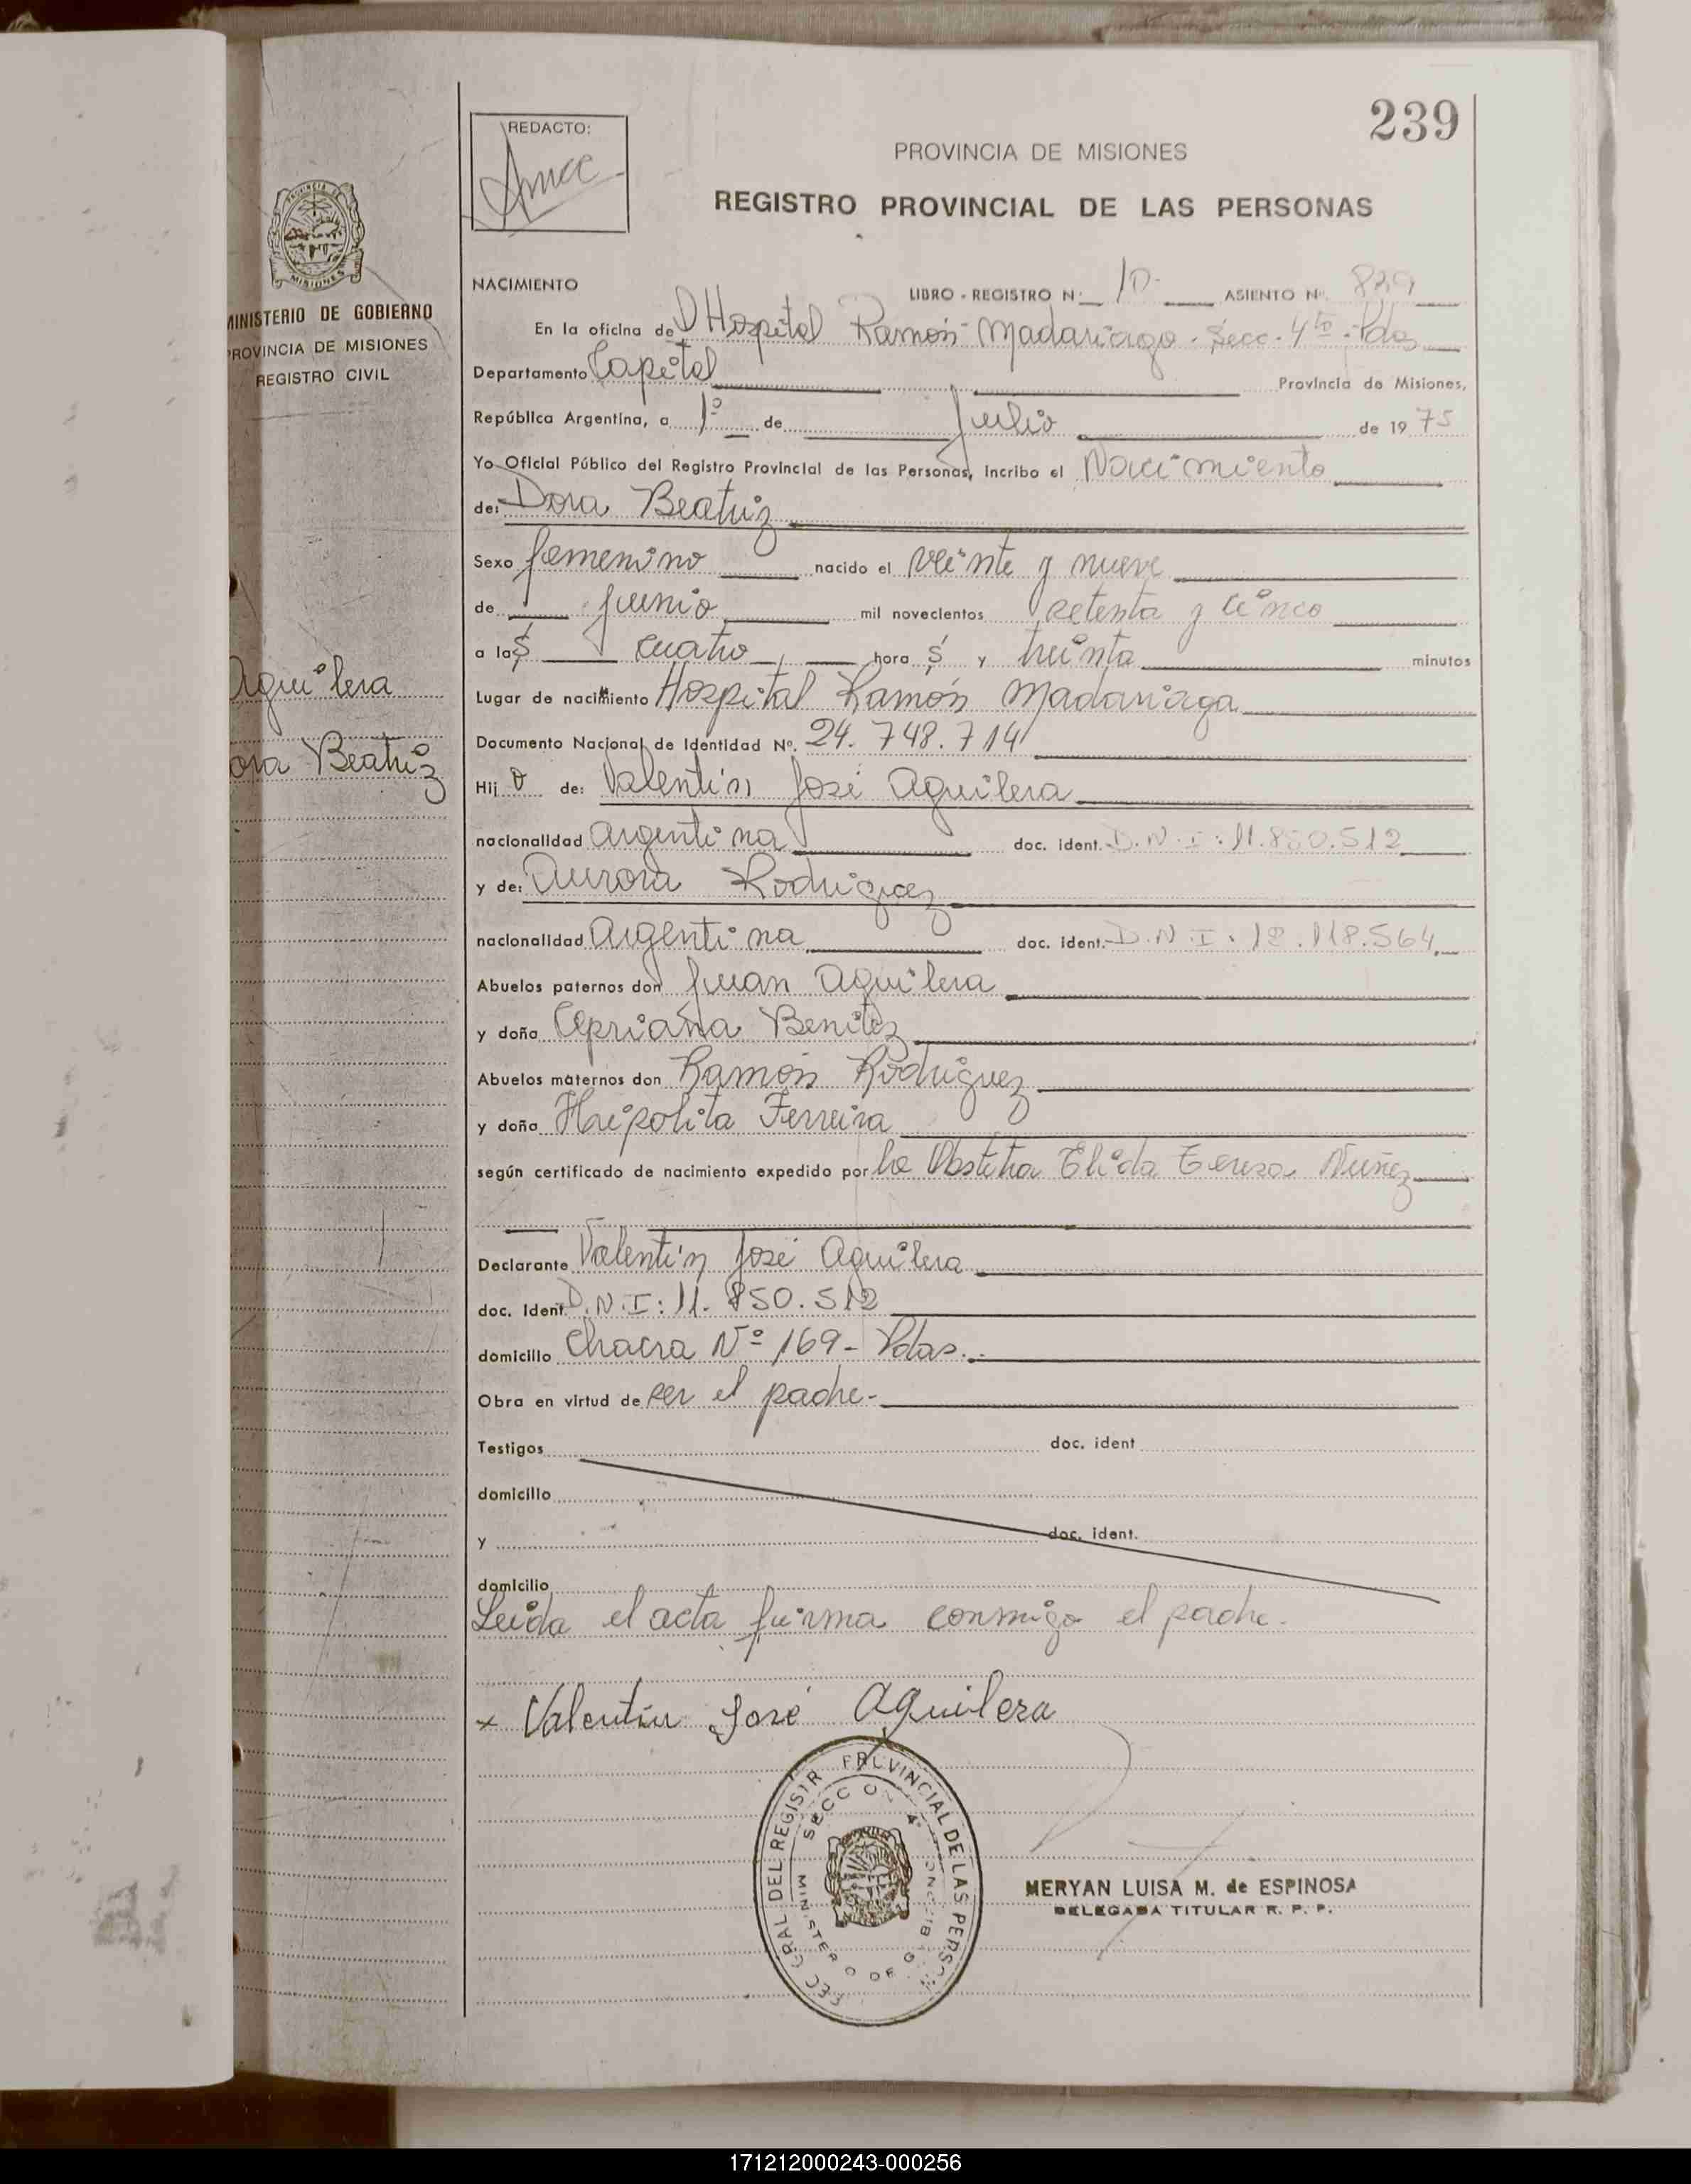 239
REDACTO:
PROVINCIA DE MISIONES
REGISTRO PROVINCIAL DE LAS PERSONAS
MINISTERIO DE GOBIERNO
PROVINCIA DE MISIONES
REGISTRO CIVIL
Aguilera
ora Beatriz
NACIMIENTO
LIBRO - REGISTRO Nº 1D ASIENTO Nº 839
En la oficina del Hospital Ramón Madariaga - Secc. 4ta - Pdas
Departamento Capital Provincia de Misiones,
República Argentina, a 1º de Julio de 1975
Yo Oficial Público del Registro Provincial de las Personas, incribo el Nacimiento
de: Dora Beatriz
Sexo femenino nacido el veinte y nueve
de junio mil novecientos setenta y cinco
a las cuatro horas y treinta minutos
Lugar de nacimiento Hospital Ramón Madariaga
Documento Nacional de Identidad Nº. 24.748.714
Hij a de: Valentín José Aguilera
nacionalidad argentina doc. ident. D.N.I: 11.850.512
y de: Aurora Rodriguez
nacionalidad Argentina doc. ident. D.N.I: 12.118.564
Abuelos paternos don Juan Aguilera
y doña Cipriana Benitez
Abuelos maternos don Ramón Rodriguez
y doña Hipolita Ferreira
según certificado de nacimiento expedido por la Obstetra Elida Teresa Nuñez
Declarante Valentín José Aguilera
doc. ident. D.N.I: 11.850.512
domicilio Chacra Nº 169 - Pdas.
Obra en virtud de ser el padre-
Testigos doc. ident
domicilio
y doc. ident.
domicilio
Leida el acta firma conmigo el padre.
x Valentín José Aguilera
PROVINCIAL DE LAS PERSON
GRAL DEL REGISTR
SECCION 4ª
MINISTERIO DE GOBI
MERYAN LUISA M. de ESPINOSA
DELEGADA TITULAR R. P. P.
171212000243-000256